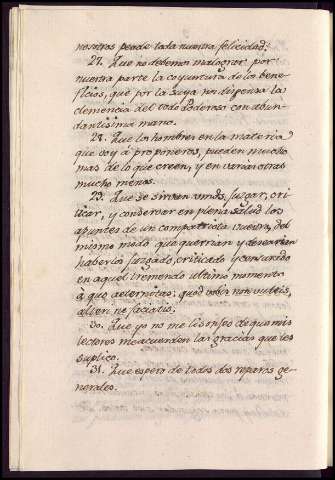 nosotros pende toda nuestra felicidad.
27. Que no debemos malograr por
nuestra parte la coyuntura de los bene-
ficios, que por la suya nos dispensa la
clemencia del todo poderoso con abun-
dantisima mano.
28. Que los hombres en la materia
que voy á proponeros, pueden mucho
mas de lo que creen, y en varias otras
mucho menos.
29. Que se sirvan vmds. juzgar, cri-
ticar, y conservar en plena salud los
apuntes de un compatriota vuestro, del
mismo modo que querrian y desearian
haberlos juzgado, criticado y conservado
en aquel tremendo ultimo momento
a quo aeternitas: quod vobis non vultis,
alteri ne faciatis.
30. Que yo no me lisonjeo de que mis
lectores me acuerden las gracias que les
suplico.
31. Que espero de todos dos reparos ge-
nerales.